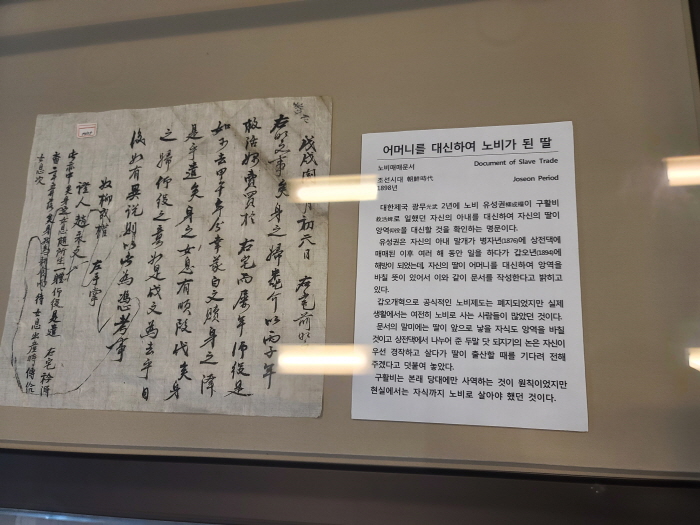 戊戌閏三月初六日 右宅前明
右明文事矣身之婦 介以丙子年
救活婢賣買於右宅而屢年仰役是
如可去甲午年分幸蒙白文贖身之澤
是乎遣矣身之女息有順段代矣身
之婦仰役之意如是成文爲去乎日
後如有異說則以此爲憑考事
奴柳成權 左手掌
證人趙永文
어머니를 대신하여 노비가 된 딸
노비매매문서 Document of Slave Trade
조선시대 朝鮮時代 Joseon Period
1898년
대한제국 광무光武 2년에 노비 유성권柳成權이 구활비
救活婢로 일했던 자신의 아내를 대신하여 자신의 딸이
앙역仰役을 대신할 것을 확인하는 명문이다.
유성권은 자신의 아내 말개가 병자년(1876)에 상전댁에
매매된 이후 여러 해 동안 일을 하다가 갑오년(1894)에
해방이 되었는데, 자신의 딸이 어머니를 대신하여 앙역을
바칠 뜻이 있어서 이와 같이 문서를 작성한다고 밝히고
있다.
갑오개혁으로 공식적인 노비제도는 폐지되었지만 실제
생활에서는 여전히 노비로 사는 사람들이 많았던 것이다.
문서의 말미에는 딸이 앞으로 낳을 자식도 앙역을 바칠
것이고 상전댁에서 나누어 준 두말 닷 되지기의 논은 자신이
우선 경작하고 살다가 딸이 출산할 때를 기다려 전해
주겠다고 덧붙여 놓았다.
구활비는 본래 당대에만 사역하는 것이 원칙이었지만
현실에서는 자식까지 노비로 살아야 했던 것이다.